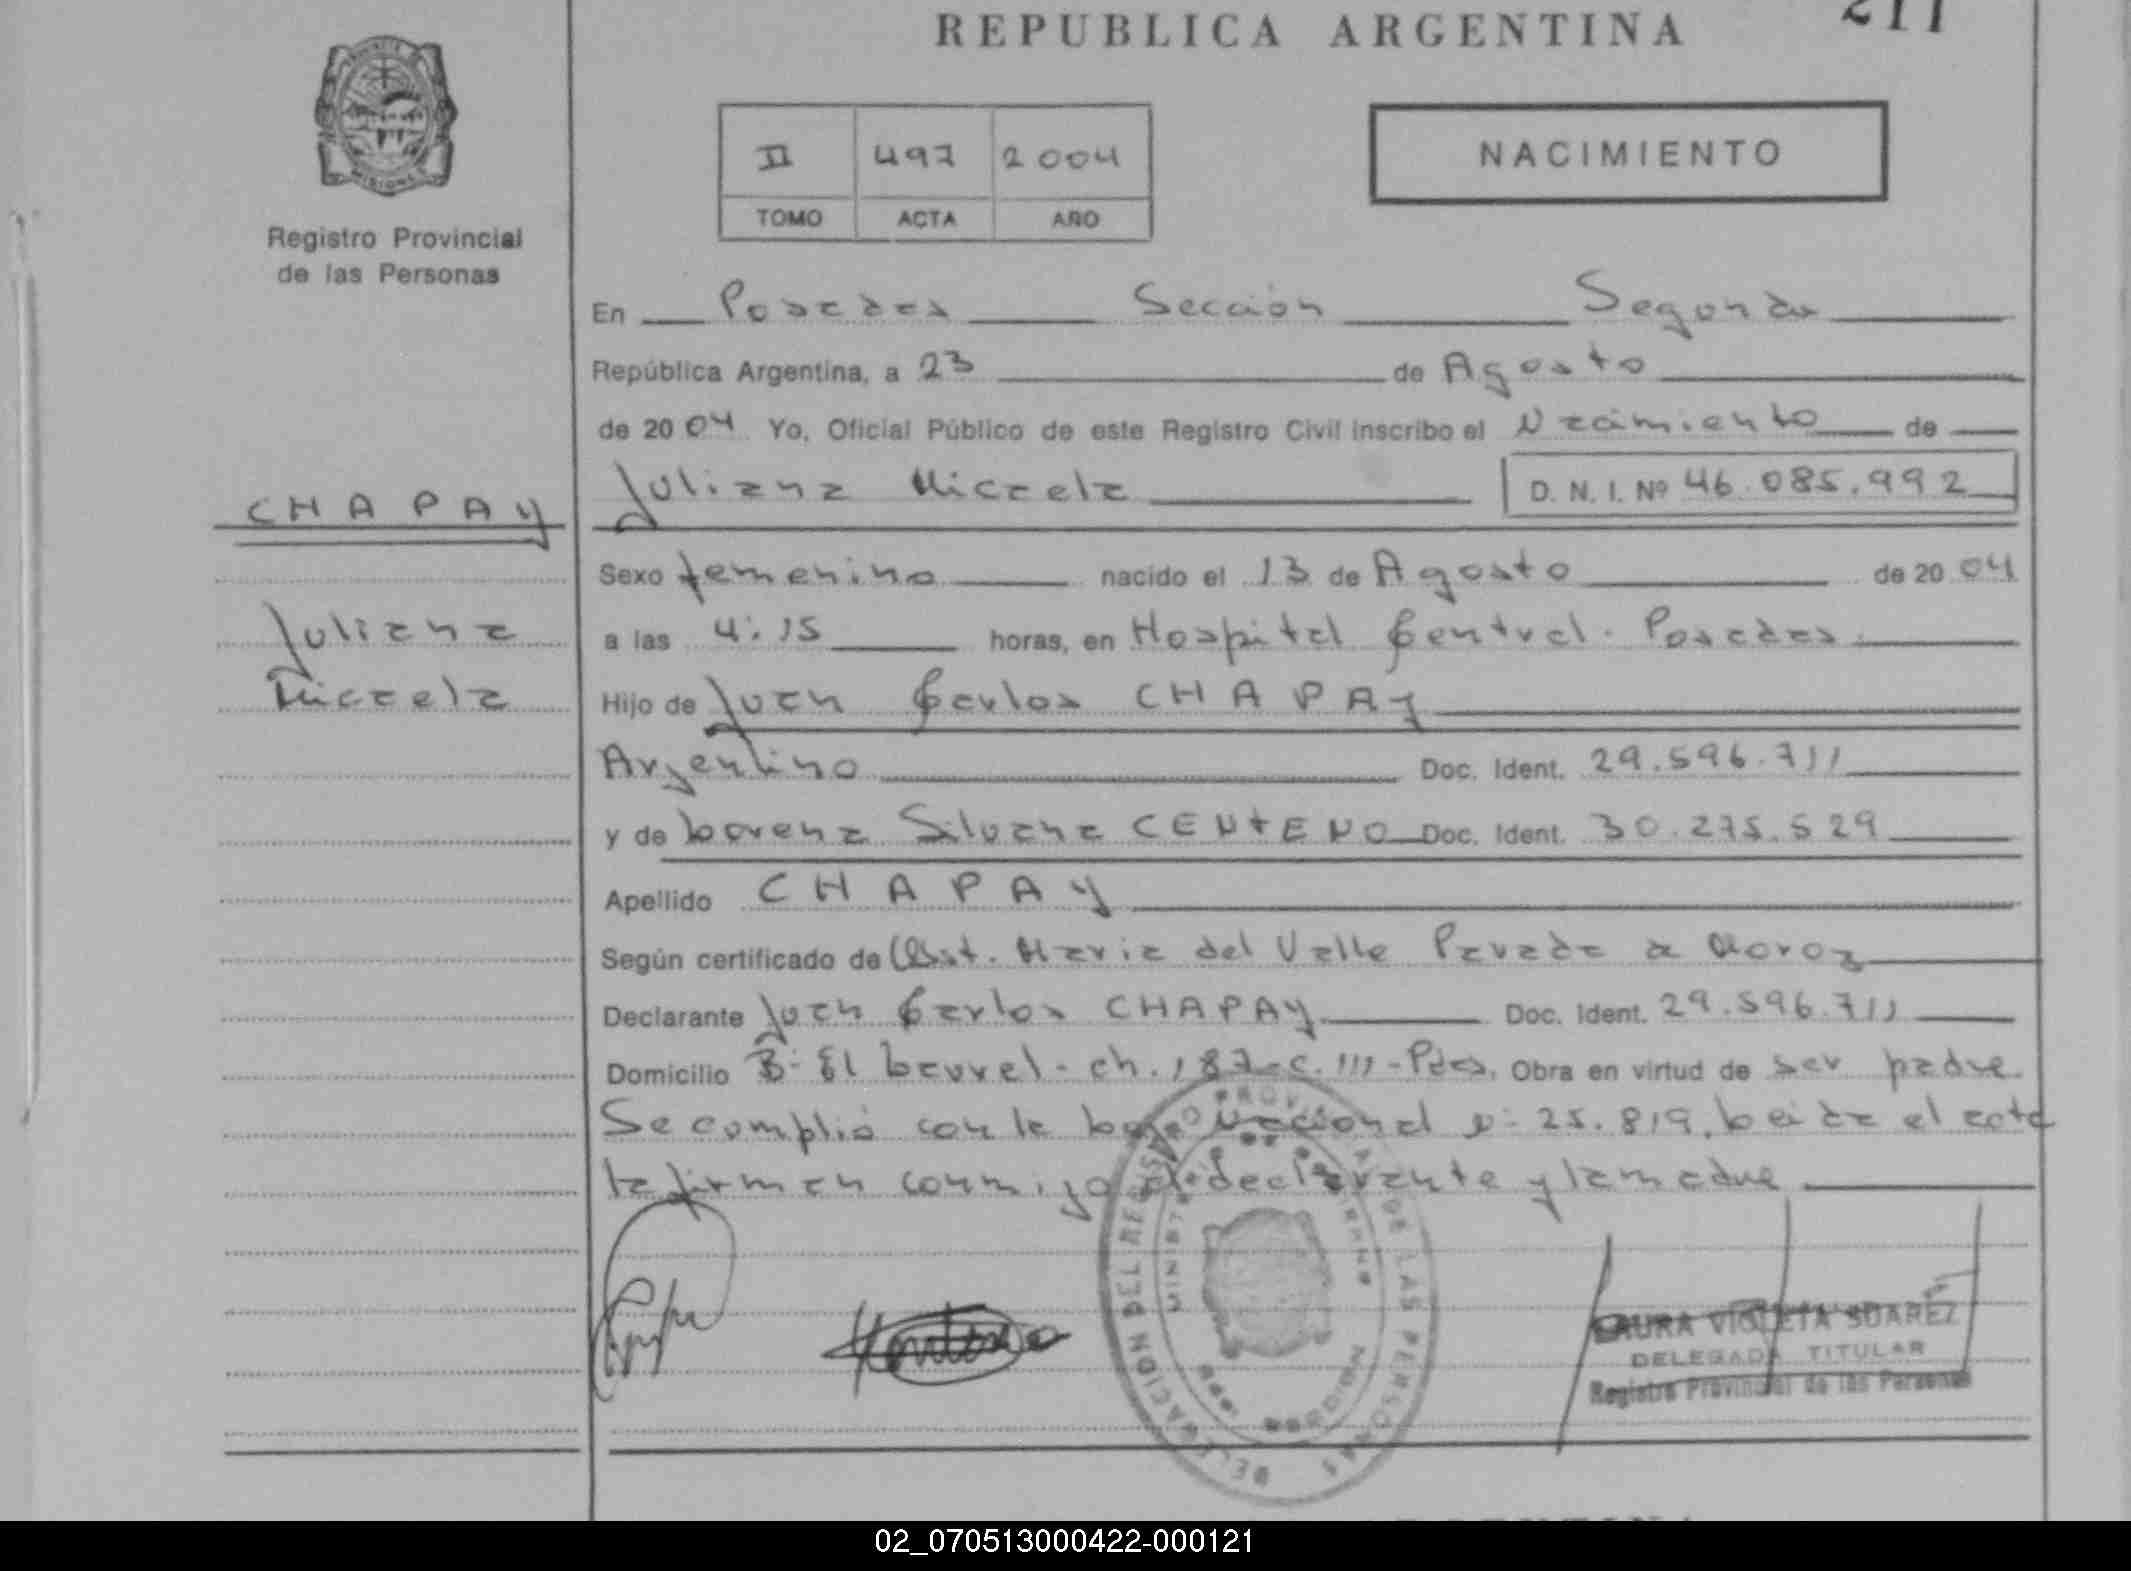 REPUBLICA ARGENTINA
211
MISIONES
Registro Provincial
de las Personas
II 497 2004
TOMO ACTA AÑO
NACIMIENTO
En Posadas Sección Segunda
República Argentina, a 23 de Agosto
de 2004 Yo, Oficial Público de este Registro Civil inscribo el Nacimiento de
CHAPAY
Juliana Micaela D. N. I. Nº 46.085.992
Sexo femenino nacido el 13 de Agosto de 2004
Juliana
a las 4:15 horas, en Hospital Central. Posadas.
Micaela
Hijo de Juan Carlos CHAPAY
Argentino Doc. Ident. 29.596.711
y de Lorena Silvana CENTENO Doc. Ident. 30.275.529
Apellido CHAPAY
Según certificado de Obst. Maria del Valle Parada de Moroz
Declarante Juan Carlos CHAPAY Doc. Ident. 29.596.711
Domicilio Bº El Laurel - ch. 187-c. 111 - Pdas. Obra en virtud de ser padre
Se cumplió con la Ley Nacional nº 25.819. Leida el acta
la firman conmigo el declarante y la madre
DELEGACION DEL REGISTRO PROVINCIAL DE LAS PERSONAS
LAURA VIOLETA SUAREZ
DELEGADA TITULAR
Registro Provincial de las Personas
02_070513000422-000121